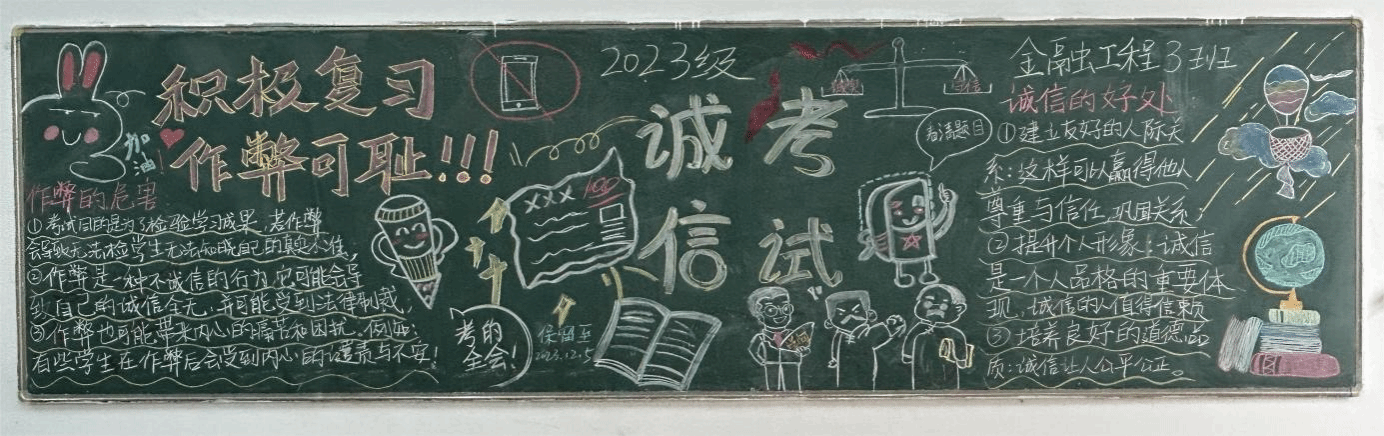 积极复习
作弊可耻!!!
加油!
作弊的危害:
①考试目的是为了检验学习成果,若作弊
会导致无法检学生无法知晓自己的真题水准,
②作弊是一种不诚信的行为,它可能会导
致自己的诚信全无,并可能受到法律制裁;
③作弊也可能带来内心的痛苦和困扰。例如:
有些学生在作弊后会受到内心的谴责与不安!
XXX
100
考的
全会!
保留至
2023.12.5
2023级
诚考
信试
诚
信
看清题目
金融工程3班
诚信的好处
①建立友好的人际关
系:这样可以赢得他人
尊重与信任,巩固关系;
②提升个人形象:诚信
是一个人品格的重要体
现,诚信的人值得信赖
③培养良好的道德品
质:诚信让人公平公正。